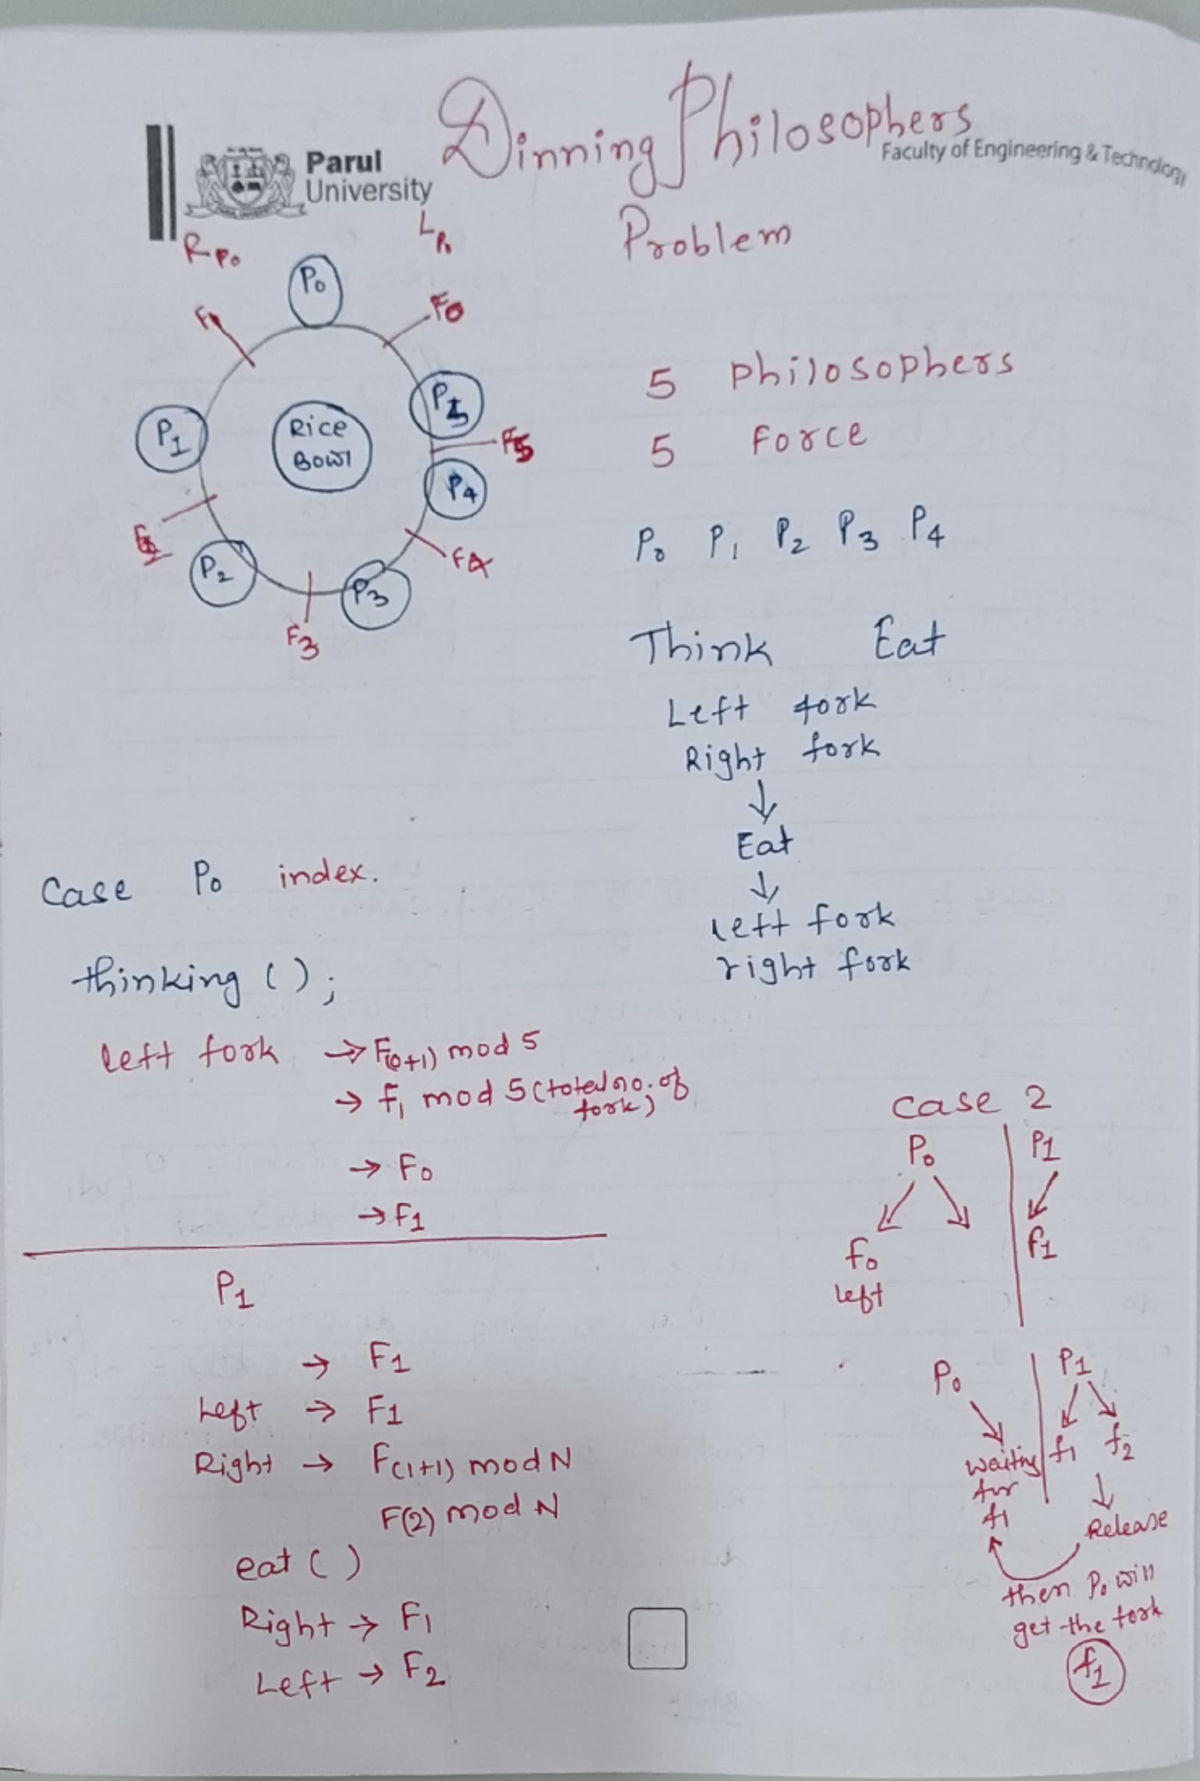 Dinning Philosophers
Parul
University
Faculty of Engineering & Technology
Problem
RP0
LP0
P0
F1
F0
P1
Rice
Bowl
P4
F4
P2
P3
F3
5 Philosophers
5 Force
P0 P1 P2 P3 P4
Think Eat
Left fork
Right fork
↓
Eat
↓
left fork
right fork
Case P0 index.
thinking ();
left fork → F(0+1) mod 5
→ f1 mod 5 (total no. of
fork)
→ F0
→ F1
P1
→ F1
Left → F1
Right → F(1+1) mod N
F(2) mod N
eat ()
Right → F1
Left → F2
Case 2
P0 P1
f0 f1
left
P0 P1
waiting f1 f2
for
f1 Release
then P0 will
get the fork
f1